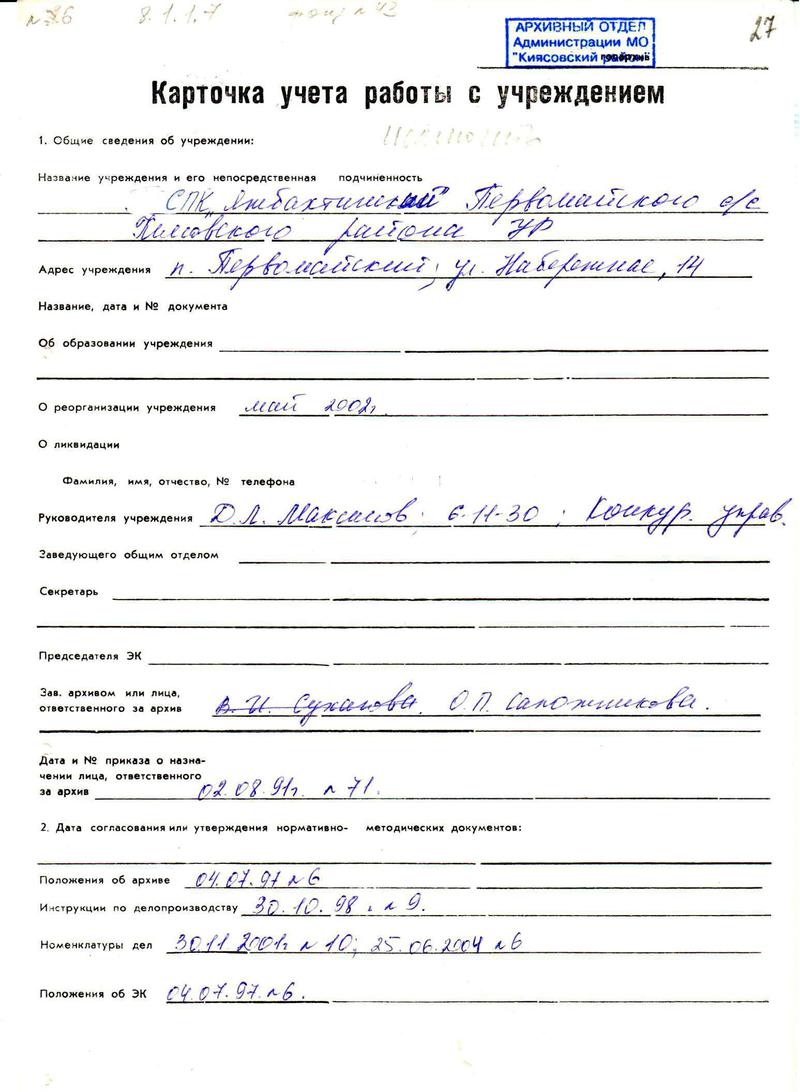 8.1.1.7 фонд № 43 27
АРХИВНЫЙ ОТДЕЛ
Администрации МО
"Киясовский район"
Карточка учета работы с учреждением
1. Общие сведения об учреждении:
Название учреждения и его непосредственная подчиненность
СПК "Яжбахтинский" Первомайского с/с
Киясовского района УР
Адрес учреждения п. Первомайский; ул. Набережная, 14
Название, дата и № документа
Об образовании учреждения
О реорганизации учреждения май 2002г.
О ликвидации
Фамилия, имя, отчество, № телефона
Руководителя учреждения Д.Л. Максимов; 6-11-30; Конкур. управ.
Заведующего общим отделом
Секретарь
Председателя ЭК
Зав. архивом или лица,
ответственного за архив В.И. Суханова. О.П. Сапожникова.
Дата и № приказа о назна-
чении лица, ответственного
за архив 02.08.91г. № 71.
2. Дата согласования или утверждения нормативно- методических документов:
Положения об архиве 04.07.97 № 6
Инструкции по делопроизводству 30.10.98 г. № 9.
Номенклатуры дел 30.11.2001г № 10; 25.06.2004 № 6
Положения об ЭК 04.07.97. № 6.